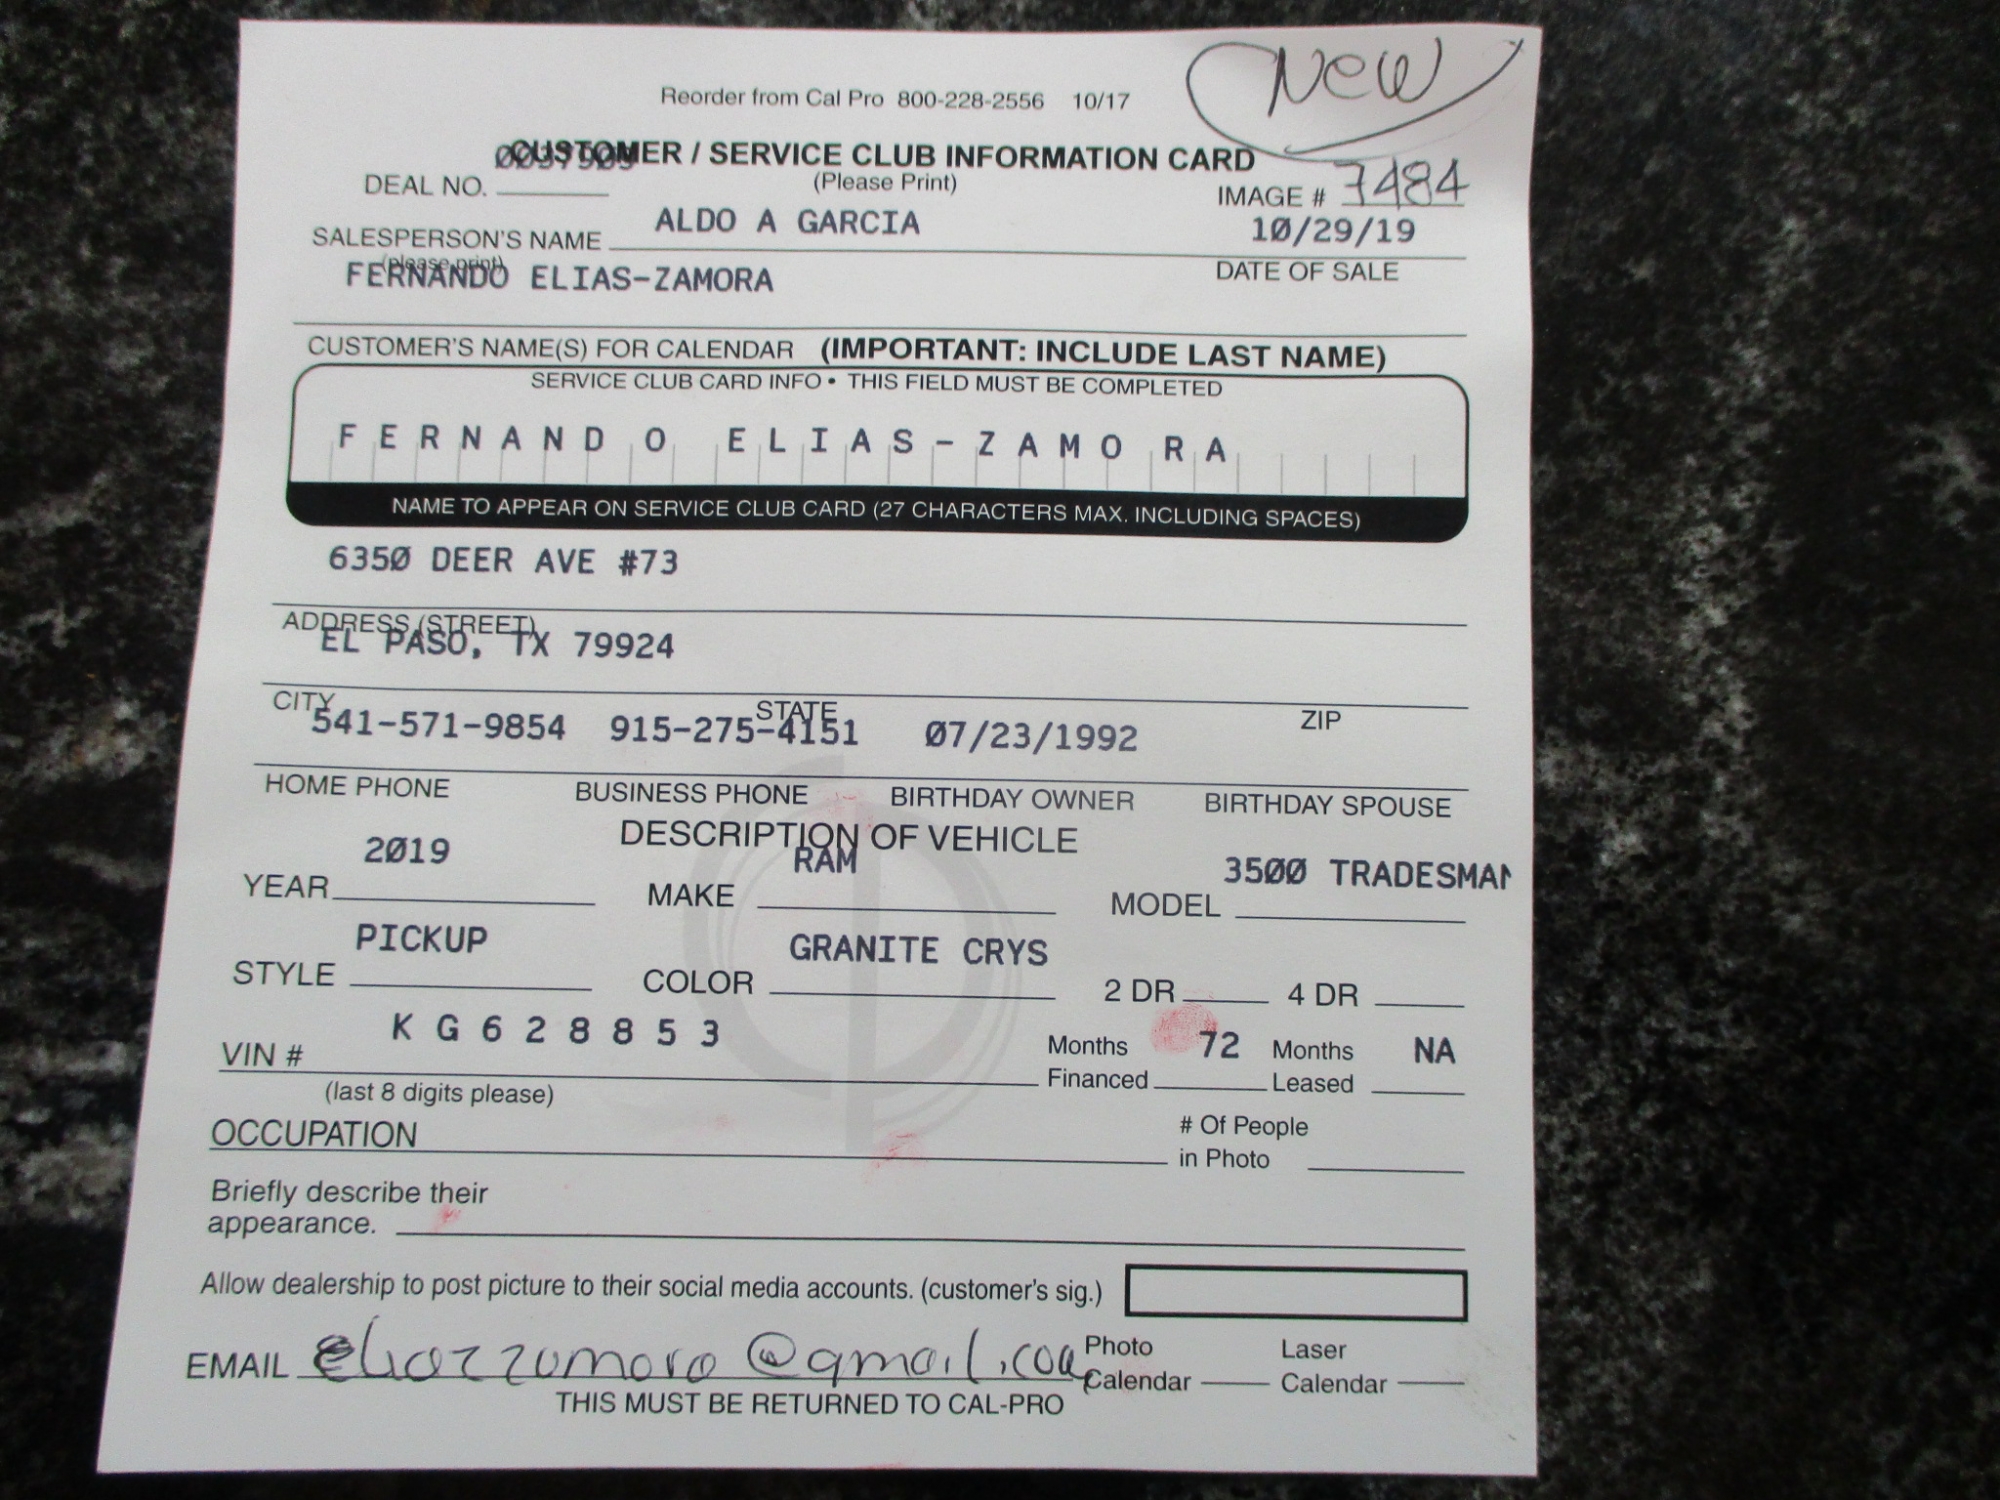 New
Reorder from Cal Pro 800-228-2556 10/17
CUSTOMER / SERVICE CLUB INFORMATION CARD
(Please Print)
DEAL NO.
IMAGE # 7484
SALESPERSON'S NAME ALDO A GARCIA 10/29/19
(please print) DATE OF SALE
FERNANDO ELIAS-ZAMORA
CUSTOMER'S NAME(S) FOR CALENDAR (IMPORTANT: INCLUDE LAST NAME)
SERVICE CLUB CARD INFO • THIS FIELD MUST BE COMPLETED
FERNANDO ELIAS-ZAMORA
NAME TO APPEAR ON SERVICE CLUB CARD (27 CHARACTERS MAX. INCLUDING SPACES)
6350 DEER AVE #73
ADDRESS (STREET)
EL PASO, TX 79924
CITY STATE ZIP
541-571-9854 915-275-4151 07/23/1992
HOME PHONE BUSINESS PHONE BIRTHDAY OWNER BIRTHDAY SPOUSE
DESCRIPTION OF VEHICLE
YEAR 2019 MAKE RAM MODEL 3500 TRADESMAN
STYLE PICKUP COLOR GRANITE CRYS 2 DR 4 DR
VIN # KG628853 Months Financed 72 Months Leased NA
(last 8 digits please)
OCCUPATION # Of People in Photo
Briefly describe their
appearance.
Allow dealership to post picture to their social media accounts. (customer's sig.)
EMAIL @gmail.com Photo Calendar Laser Calendar
THIS MUST BE RETURNED TO CAL-PRO